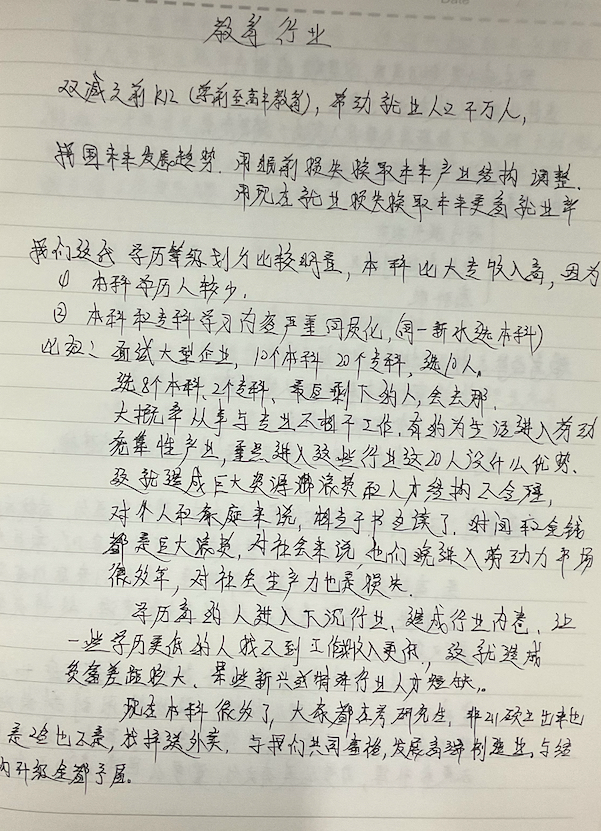 教育行业
双减之前K12(学前至高中教育),带动就业人又千万人,
我国未来发展趋势.用眼前损失换取未来产业结构调整.
用现在就业损失换取未来更高就业率
我们这代学历等级划分比较明显,本科比大专收入高,因为
① 本科学历人较少.
② 本科和专科学习内容严重同质化,(同一薪水选本科)
比如:面试大型企业,10个本科20个专科,选10人。
选8个本科、2个专科、最后剩下的人,会去那.
大概率从事与专业不相干工作.有的为生活进入劳动
密集性产业,重点进入这些行业这20人没什么优势.
这就造成巨大资源浪费和人才结构不合理,
对个人和家庭来说,相当于书白读了.时间和金钱
都是巨大浪费,对社会来说,他们晚进入劳动力市场
很多年,对社会生产力也是损失.
学历高的人进入下沉行业,造成行业内卷,让
一些学历更低的人找不到工作或收入更低,这就造成
贫富差距较大、某些新兴或特殊行业人才短缺。
现在本科很多了,大家都在考研究生,非211硕士出来也
是2也不是,
与我们共同富裕,发展高端制造业,与结
升级全都矛盾。